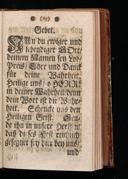 ( 89 )
Gebet.
NUn du ewiger und
lebendiger GOtt
deinem Namen sey Lob
Preis, Ehre und Danck
für deine Wahrheit.
Heilige uns, o HERR!
in deiner Wahrheit, denn
dein Wort ist die Wahr-
heit. Schencke uns den
Heiligen Geist.
de ihn in unsere Hertzen
daß du es fest
und